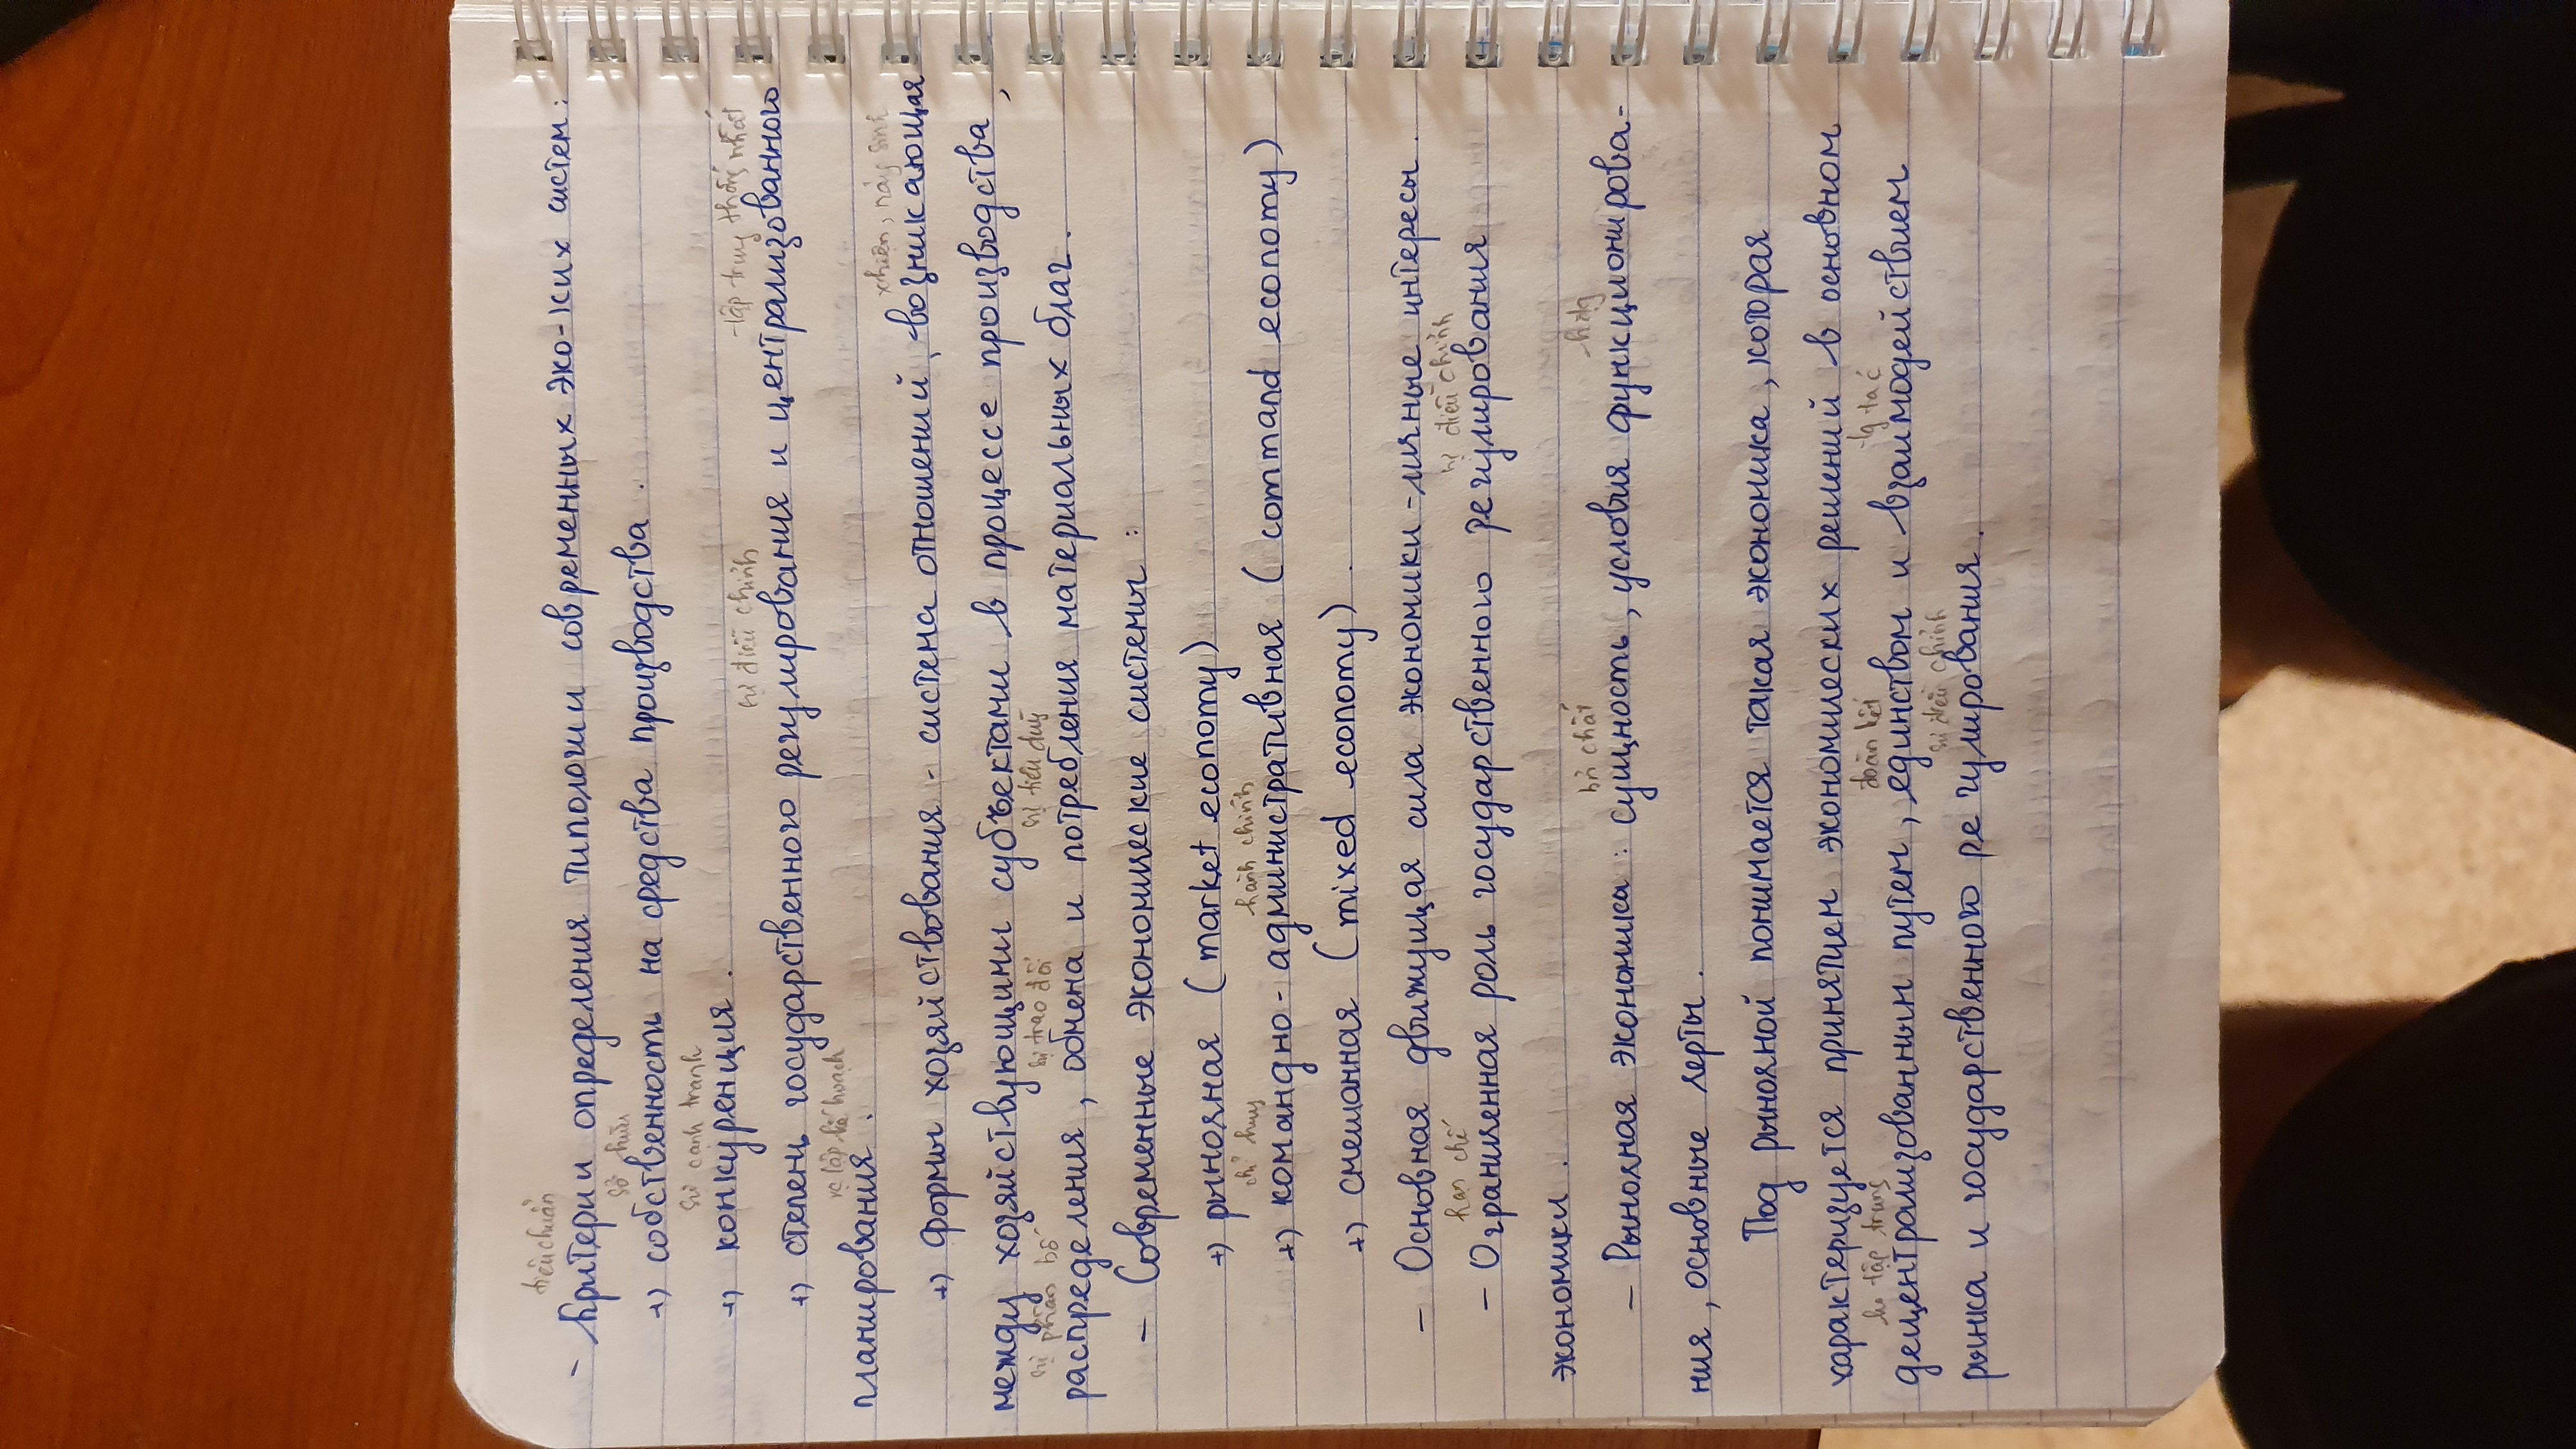 tiêu chuẩn
- Критерии определения типологии современных эко-ких систем:
sở hữu
+) собственность на средства производства.
sự cạnh tranh
+) конкуренция.
sự điều chỉnh tập trung thống nhất
+) степень государственного регулирования и централизованного
vc lập kế hoạch
планирования.
xhiện, nảy sinh
+) формы хозяйствования - система отношений, возникающая
между хозяйствующими субъектами в процессе производства,
sự phân bố sự trao đổi sự tiêu dùng
распределения, обмена и потребления материальных благ.
- Современные экономические системы:
+) рыночная (market economy)
chỉ huy hành chính
+) командно-административная (command economy)
+) смешанная (mixed economy).
- Основная движущая сила экономики - личные интересы.
hạn chế sự điều chỉnh
- Ограниченная роль государственного регулирования
экономики.
bản chất
- Рыночная экономика: сущность, условия функционирова-
ния, основные черты.
Под рыночной понимается такая экономика, которая
характеризуется принятием экономических решений в основном
ko tập trung đoàn kết tg tác
децентрализованным путем, единством и взаимодействием
sự điều chỉnh
рынка и государственного регулирования.